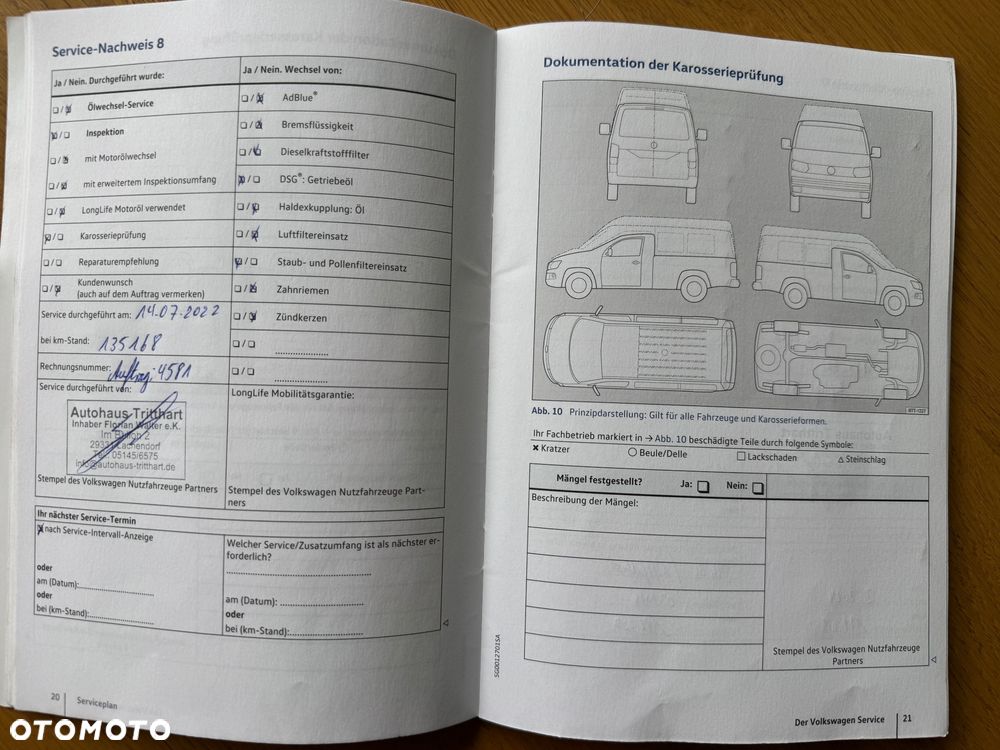 Service-Nachweis 8
Ja / Nein. Durchgeführt wurde:
Ölwechsel-Service
Inspektion
mit Motorölwechsel
mit erweitertem Inspektionsumfang
LongLife Motoröl verwendet
Karosserieprüfung
Reparaturempfehlung
Kundenwunsch
(auch auf dem Auftrag vermerken)
Service durchgeführt am: 14.07.2022
bei km-Stand: 135168
Rechnungsnummer: Auftrag: 4581
Service durchgeführt von:
Autohaus Tritthart
Inhaber Florian Walter e.K.
Lachendorf
Tel. 05145/6575
info@autohaus-tritthart.de
Stempel des Volkswagen Nutzfahrzeuge Partners
Ja / Nein. Wechsel von:
AdBlue®
Bremsflüssigkeit
Dieselkraftstofffilter
DSG®: Getriebeöl
Haldexkupplung: Öl
Luftfiltereinsatz
Staub- und Pollenfiltereinsatz
Zahnriemen
Zündkerzen
LongLife Mobilitätsgarantie:
Stempel des Volkswagen Nutzfahrzeuge Part-
ners
Ihr nächster Service-Termin
nach Service-Intervall-Anzeige
oder
am (Datum):
oder
bei (km-Stand):
Welcher Service/Zusatzumfang ist als nächster er-
forderlich?
am (Datum):
oder
bei (km-Stand):
20 Serviceplan
Dokumentation der Karosserieprüfung
Abb. 10 Prinzipdarstellung: Gilt für alle Fahrzeuge und Karosserieformen.
Ihr Fachbetrieb markiert in → Abb. 10 beschädigte Teile durch folgende Symbole:
× Kratzer ○ Beule/Delle □ Lackschaden △ Steinschlag
Mängel festgestellt? Ja: Nein:
Beschreibung der Mängel:
Stempel des Volkswagen Nutzfahrzeuge
Partners
SG0012701SA
Der Volkswagen Service 21
OTOMOTO